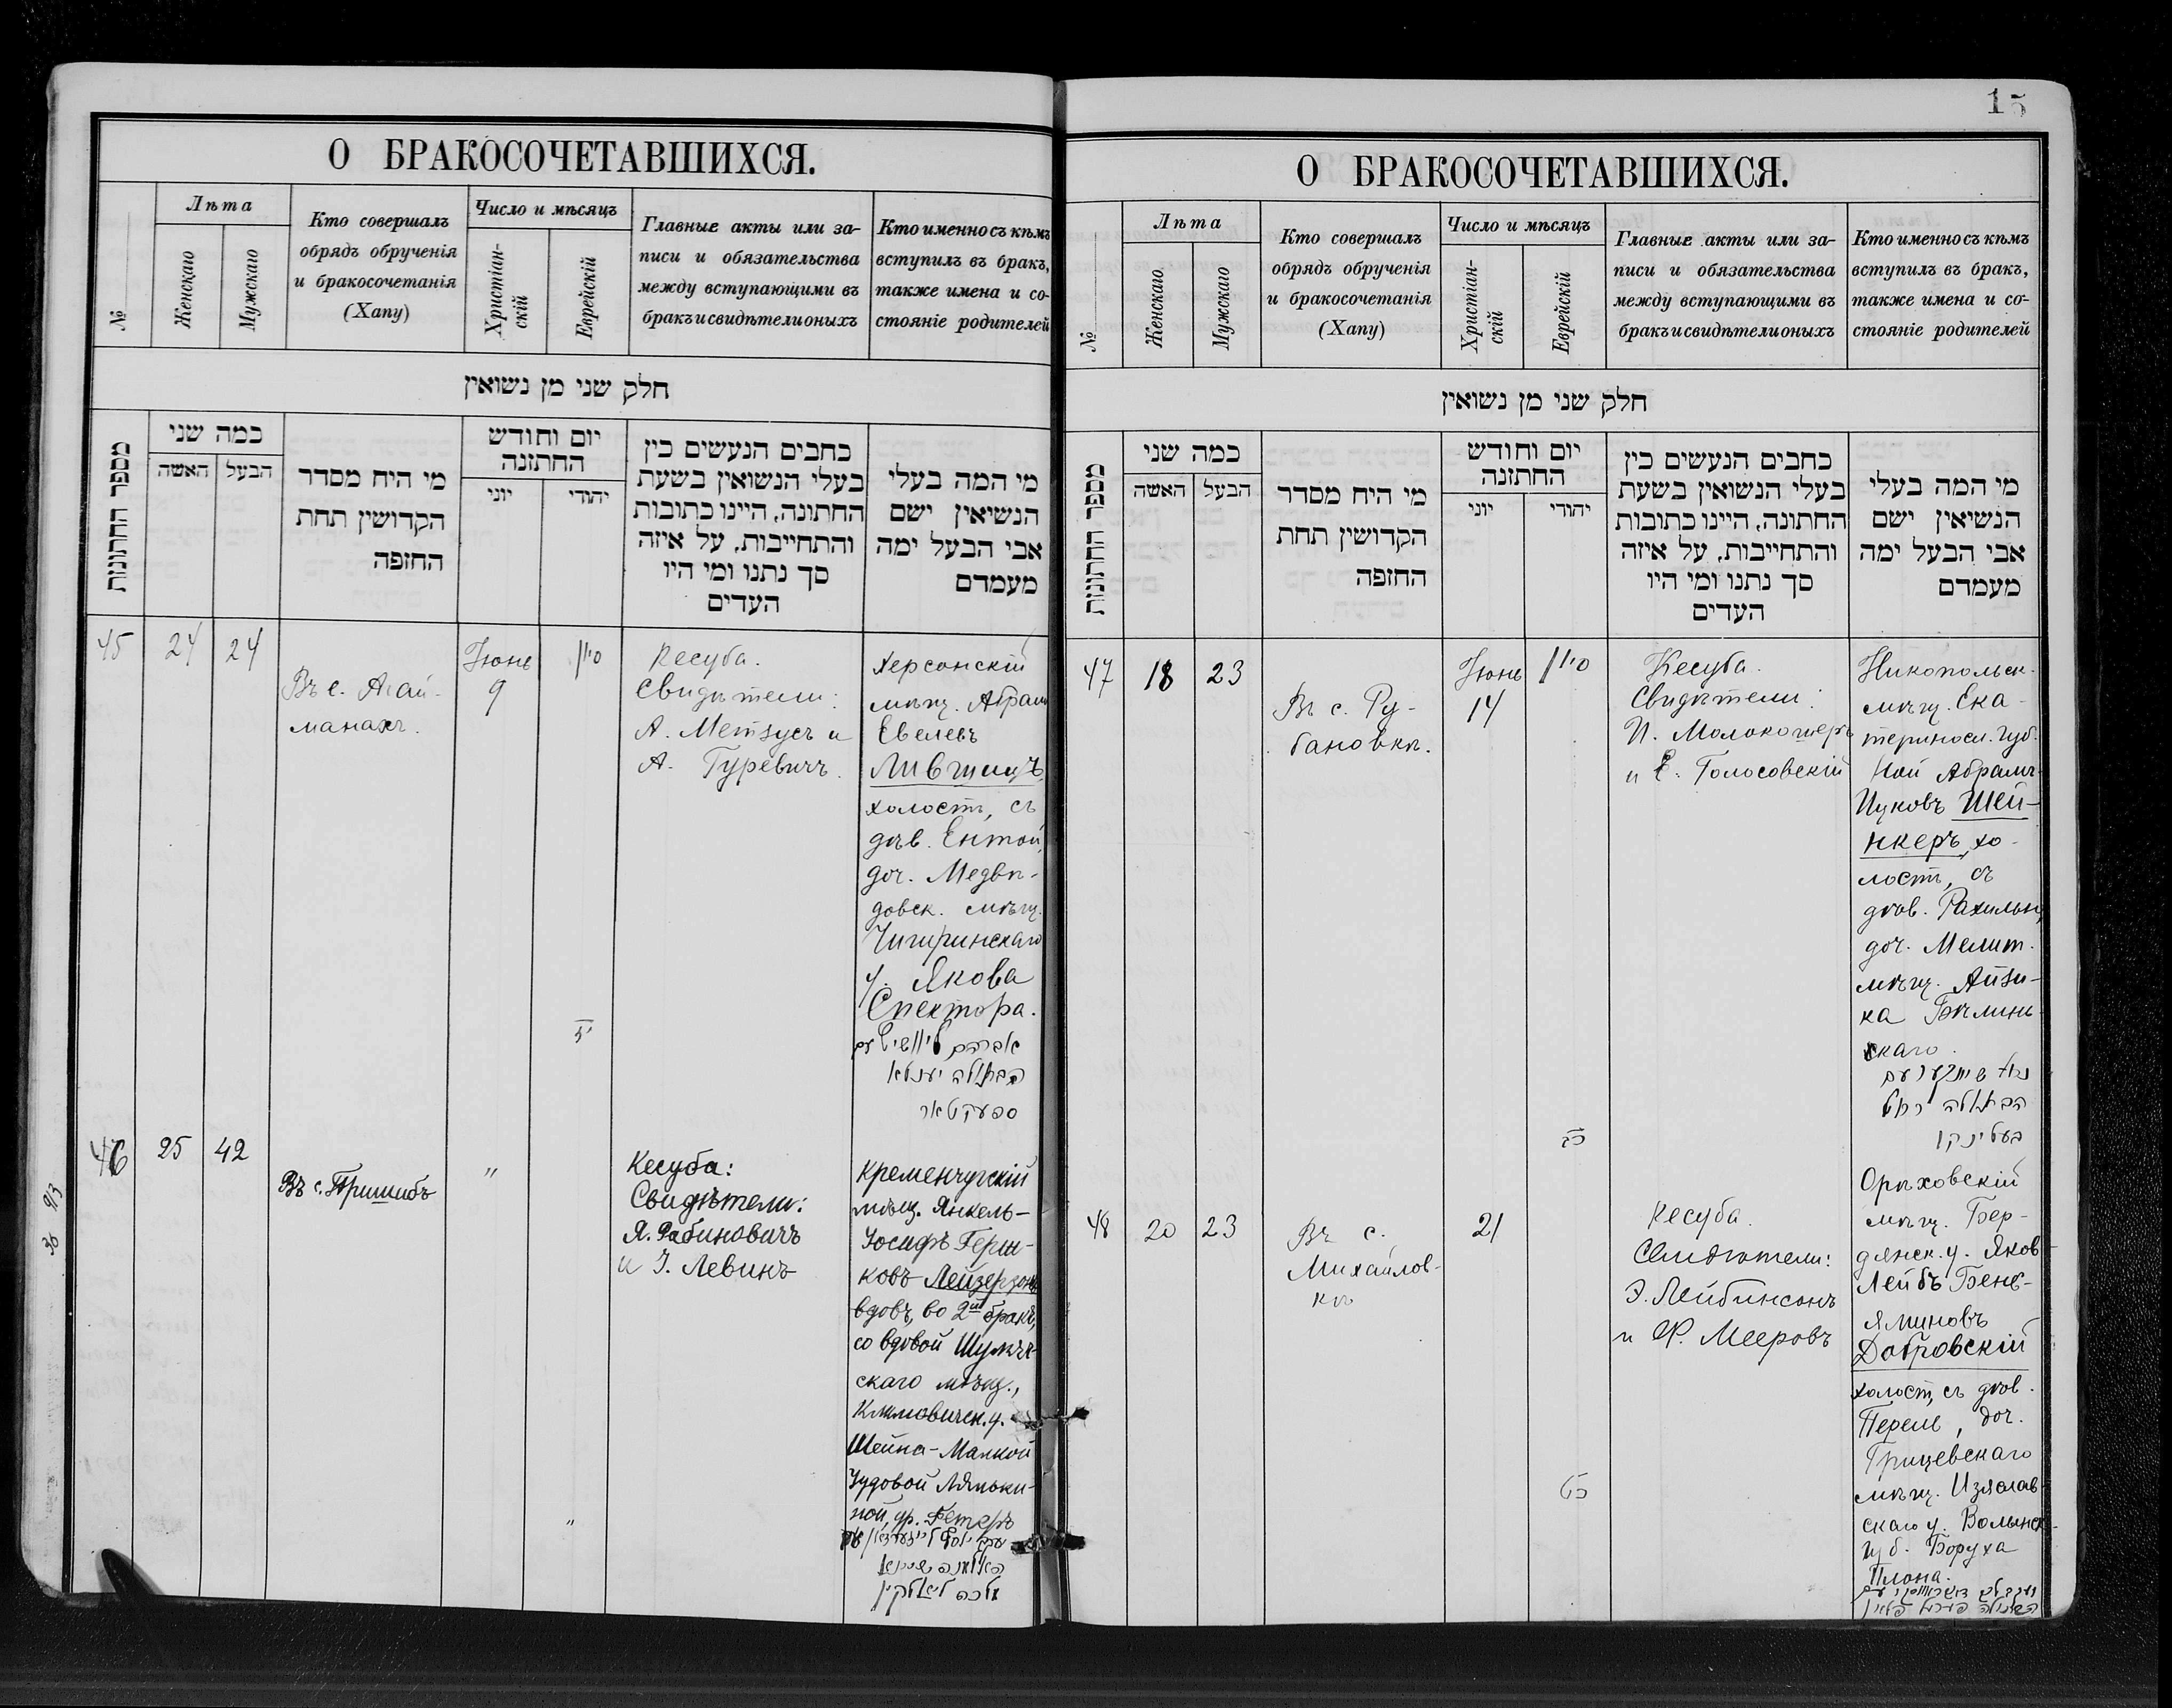 О БРАКОСОЧЕТАВШИХСЯ.
№
Лѣта
Женскаго
Мужскаго
Кто совершалъ
обрядъ обрученія
и бракосочетанія
(Хапу)
Число и мѣсяцъ
Христіан-
скій
Еврейскій
Главные акты или за-
писи и обязательства
между вступающими въ
бракъ и свидѣтели оныхъ
Кто именно съ кѣмъ
вступилъ въ бракъ,
также имена и со-
стояніе родителей
חלק שני מן נשואין
מספר החתונות
כמה שני
האשה
הבעל
מי היח מסדר
הקדושין תחת
החופה
יום וחודש
החתונה
יוני
יהודי
כחבים הנעשים כין
בעלי הנשואין בשעת
החתונה, היינו כתובות
והתחייבות, על איזה
סך נתנו ומי היו
העדים
מי המה בעלי
הנשיאין ישם
אבי הבעל ימה
מעמדם
45
24
24
Въ с. Агай-
манахъ.
Іюнь
9
סיון
יד
Кесуба.
Свидѣтели:
А. Метзусъ и
А. Гуревичъ.
Херсонскій
мѣщ. Абрамъ
Евелевъ
Лившицъ,
холостъ, съ
дѣв. Ентой,
доч. Медвѣ-
довск. мѣщ.
Чигиринскаго
у. Якова
Спектора.
אברהם ליוושיץ עם
הבתולה יענטא
ספעקטאר
46
25
42
Въ с. Пришибъ
"
"
Кесуба:
Свидѣтели:
Я. Рабиновичъ
и І. Левинъ
Кременчугскій
мѣщ. Янкель-
Іосифъ Герш-
ковъ Лейзерзонъ
вдовъ, во 2й бракъ,
со вдовой Шумяч-
скаго мѣщ.,
Климовичск. у.
Шейна-Малкой
Іудовой Лямки-
ной, ур. Гетеръ
יעקב יוסף לייזערזאן עם
האלמנה שיינא
מלכה ליאמקין
36 9/3
15
О БРАКОСОЧЕТАВШИХСЯ.
№
Лѣта
Женскаго
Мужскаго
Кто совершалъ
обрядъ обрученія
и бракосочетанія
(Хапу)
Число и мѣсяцъ
Христіан-
скій
Еврейскій
Главные акты или за-
писи и обязательства
между вступающими въ
бракъ и свидѣтели оныхъ
Кто именно съ кѣмъ
вступилъ въ бракъ,
также имена и со-
стояніе родителей
חלק שני מן נשואין
מספר החתונות
כמה שני
האשה
הבעל
מי היח מסדר
הקדושין תחת
החופה
יום וחודש
החתונה
יוני
יהודי
כחבים הנעשים כין
בעלי הנשואין בשעת
החתונה, היינו כתובות
והתחייבות, על איזה
סך נתנו ומי היו
העדים
מי המה בעלי
הנשיאין ישם
אבי הבעל ימה
מעמדם
47
18
23
Въ с. Ру-
бановкѣ.
Іюнь
14
סיון
Кесуба.
Свидѣтели:
И. Молокошеръ
и Е. Голосовскій
Никопольск.
мѣщ. Ека-
теринсл. губ.
Ной Абрамъ-
Ицковъ Шей-
нкеръ, хо-
лостъ, съ
дѣв. Рахилью,
доч. Мелит.
мѣщ. Айзи-
ка Бѣлинь-
скаго.
נח שיינקער עם
הבתולה רחל
בעלינקי
48
20
23
Въ с.
Михайлов-
кѣ
21
Кесуба.
Свидѣтели:
Э. Лейбинсонъ
и Ф. Мееровъ
Орѣховскій
мѣщ. Бер-
дянск. у. Яковъ-
Лейбъ Бене-
яминовъ
Добровскій
холостъ, съ дѣв.
Перель, доч.
Грицевскаго
мѣщ. Изяслав-
скаго у. Волынск.
губ. Боруха
Плона.